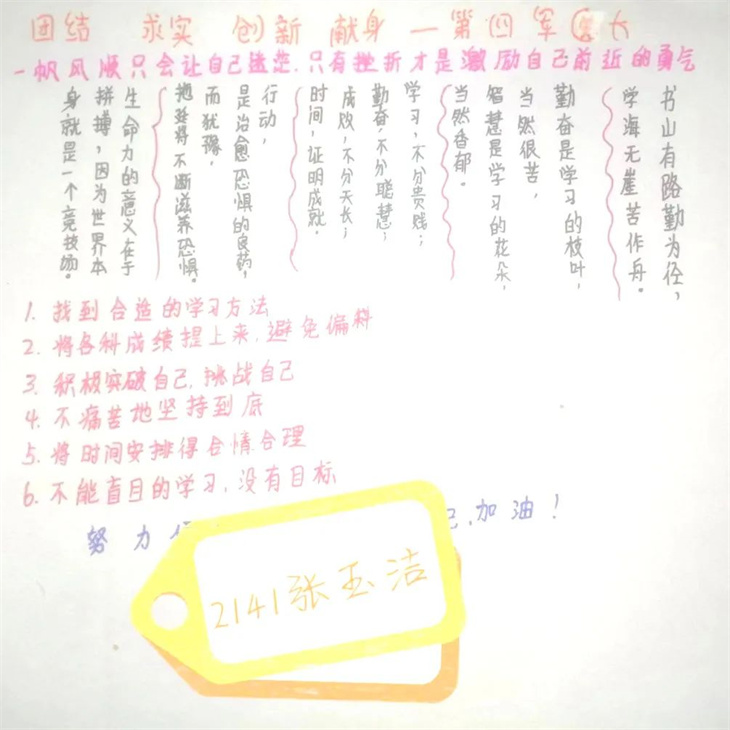 团结 求实 创新 献身 —第四军医大
一帆风顺只会让自己迷茫.只有挫折才是激励自己前近的勇气
书山有路勤为径，
学海无崖苦作舟。
勤奋是学习的枝叶，
当然很苦，
智慧是学习的花朵，
当然香郁。
学习，不分贵贱；
勤奋，不分聪慧；
成败，不分天长；
时间，证明成就，
行动，
是治愈恐惧的良药，
而犹豫，
拖延将不断滋养恐惧。
生命力的意义在于
拼搏，因为世界本
身就是一个竞技场。
1. 找到合适的学习方法
2. 将各科成绩提上来，避免偏科
3. 积极突破自己，挑战自己
4. 不痛苦地坚持到底
5. 将时间安排得合情合理
6. 不能盲目的学习，没有目标
努力 己，加油！
2141张玉洁